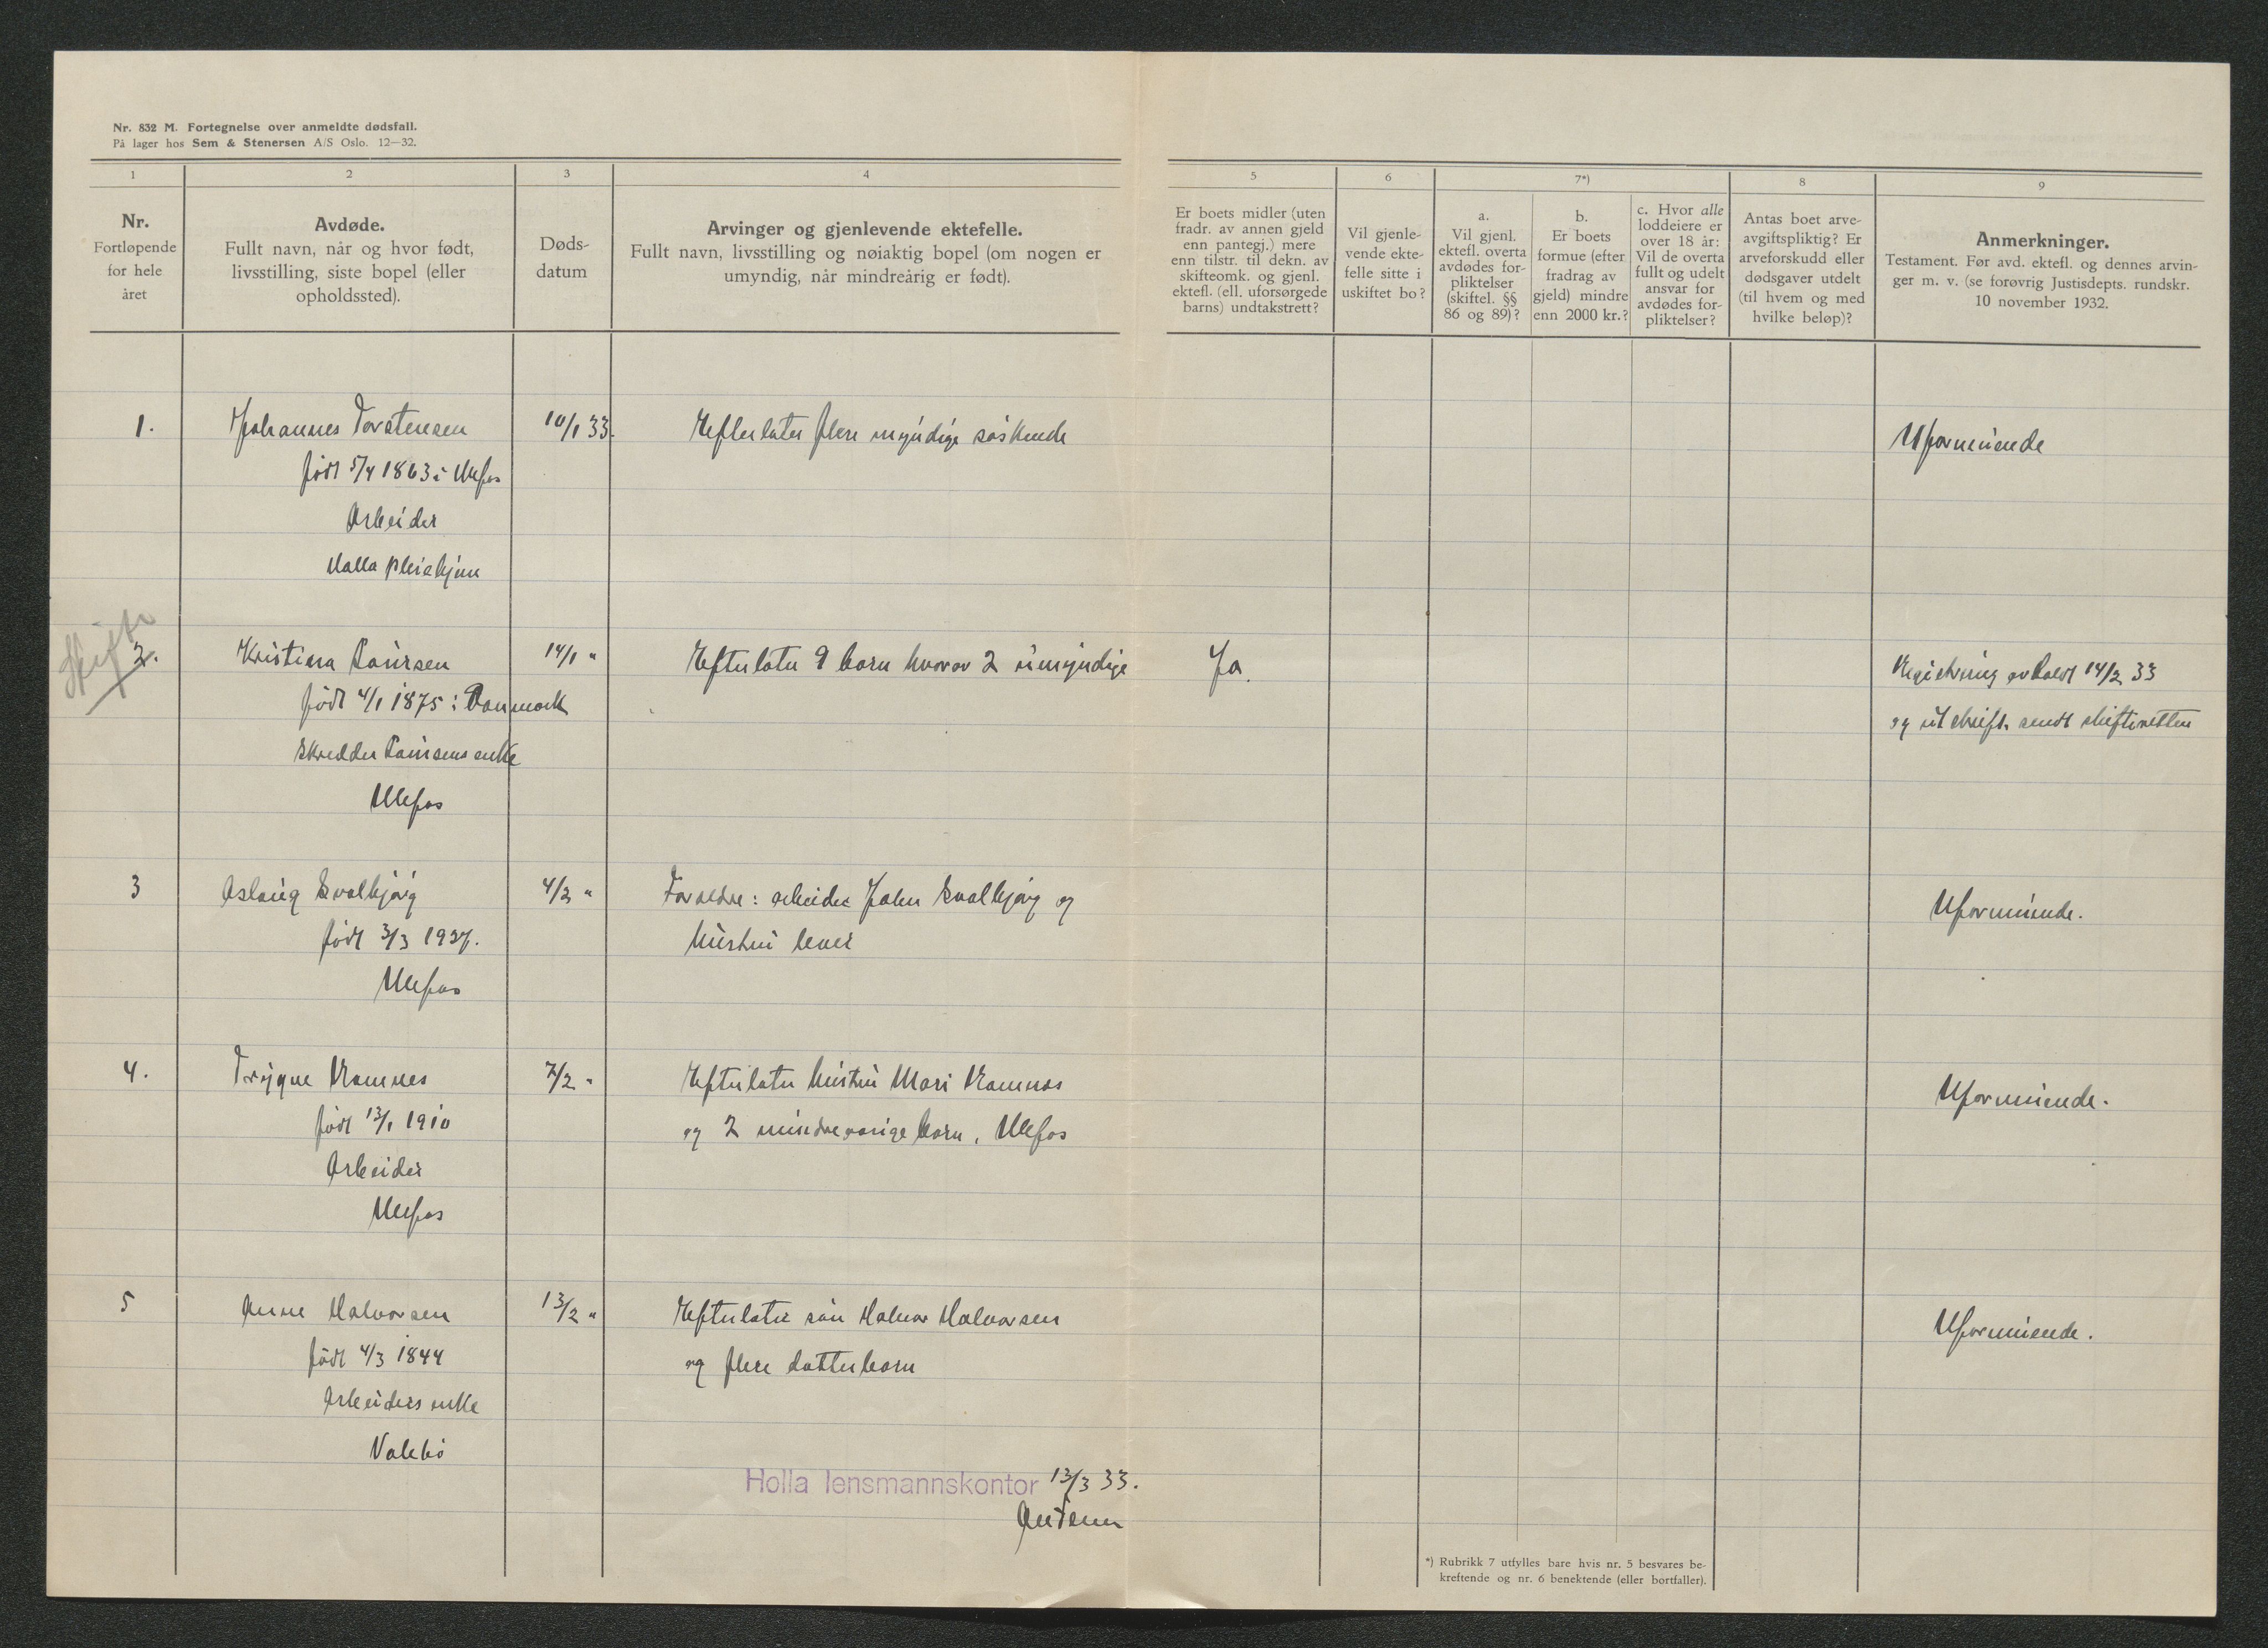 Nr. 832 M. Fortegnelse over anmeldte dødsfall.
På lager hos Sem & Stenersen A/S Oslo. 12—32.
1
Nr.
Fortløpende
for hele
året
2
Avdøde.
Fullt navn, når og hvor født,
livsstilling, siste bopel (eller
opholdssted).
3
Døds-
datum
4
Arvinger og gjenlevende ektefelle.
Fullt navn, livsstilling og nøiaktig bopel (om nogen er
umyndig, når mindreårig er født).
5
Er boets midler (uten
fradr. av annen gjeld
enn pantegj.) mere
enn tilstr. til dekn. av
skifteomk. og gjenl.
ektefl. (ell. uforsørgede
barns) undtakstrett?
6
Vil gjenle-
vende ekte-
felle sitte i
uskiftet bo?
7*)
a.
Vil gjenl.
ektefl. overta
avdødes for-
pliktelser
(skiftel. §§
86 og 89)?
b.
Er boets
formue (efter
fradrag av
gjeld) mindre
enn 2000 kr.?
c. Hvor alle
loddeiere er
over 18 år:
Vil de overta
fullt og udelt
ansvar for
avdødes for-
pliktelser?
8
Antas boet arve-
avgiftspliktig? Er
arveforskudd eller
dødsgaver utdelt
(til hvem og med
hvilke beløp)?
9
Anmerkninger.
Testament. Før avd. ektefl. og dennes arvin-
ger m. v. (se forøvrig Justisdepts. rundskr.
10 november 1932.
1.
Johannes Torstensen
født 5/4 1863 i Ulefos
Arbeider
Holla pleiehjem
10/1 33.
Efterlater flere myndige søskende
Uformuende
Skifte
2.
Kristina Paursen
født 4/1 1875 i Danmark
Skredder Paursens enke
Ulefos
14/1 "
Efterlater 9 barn hvorav 2 umyndige
Ja.
Registrering avholdt 14/2 33
og utskrift sendt skifteretten
3
Aslaug Kvalbjørg
født 3/3 1927.
Ulefos
4/2 "
Foreldre: arbeider John Kvalbjørg og
hustru lever
Uformuende.
4.
Trygve Namnes
født 13/1 1910
Arbeider
Ulefos
7/2 "
Efterlater hustru Mari Namnes
og 2 mindreårige barn, Ulefos
Uformuende.
5
Anne Halvorsen
født 4/3 1844
Arbeiders enke
Valebø
13/2 "
Efterlater søn Halvor Halvorsen
og flere datterbarn
Uformuende.
Holla lensmannskontor 13/3 33.
*) Rubrikk 7 utfylles bare hvis nr. 5 besvares be-
kreftende og nr. 6 benektende (eller bortfaller).